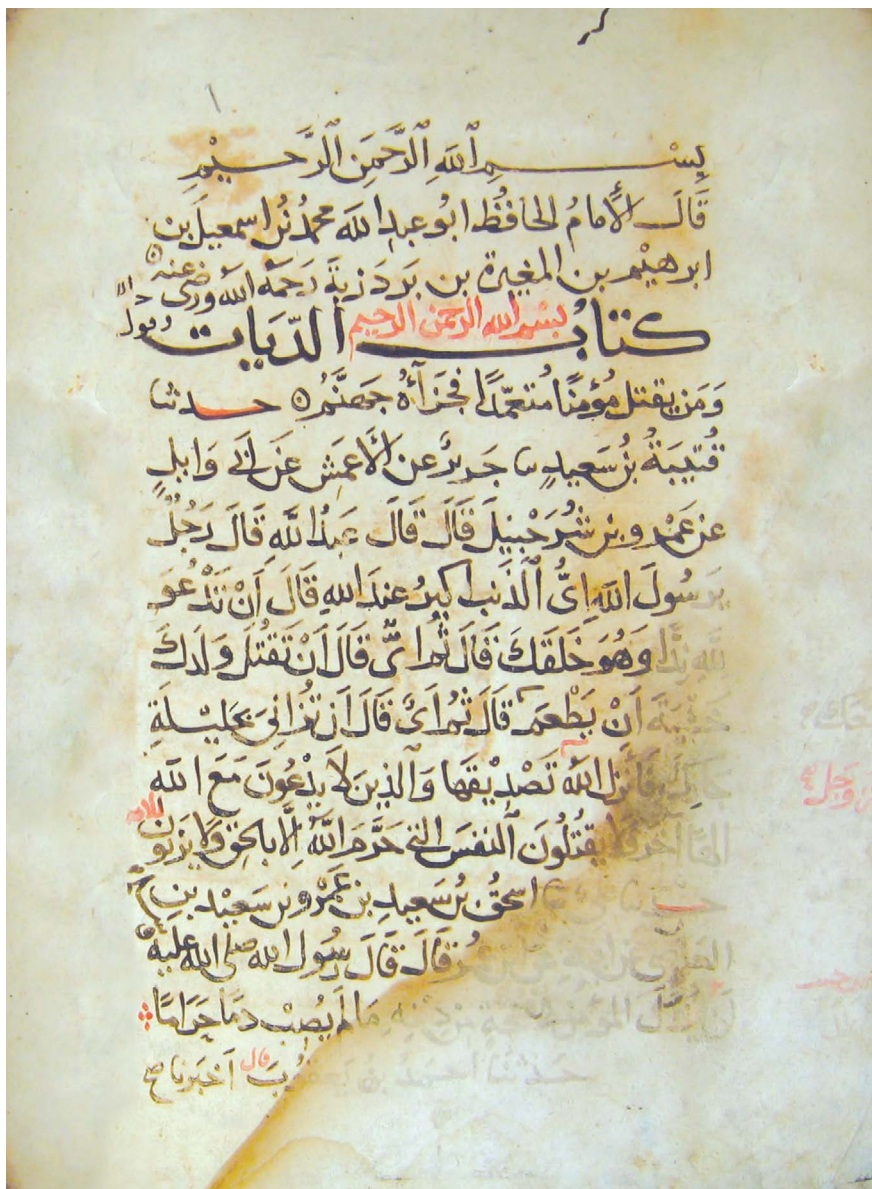 بِسْمِ ٱللَّهِ ٱلرَّحْمَنِ ٱلرَّحِيْمِ
قَالَ الأمامُ الحافظُ ابو عبد الله محمدُ بنُ اسمعيلَ بن
ابرهيْم بن المغيرة بن بَردَزبةَ رَحمَهُ الله ورضى عنه
كتابُ بسْم الله الرحمن الرحيم الدّيَات
وَمَن يقتل مُؤمنًا مُتعمّدًا فجزآؤُه جَهنَّمُ حدثنا
قُتيبَةُ بنُ سَعيدٍ نا جَريرٌ عن الأعمَش عَن ابى وَايلٍ
عن عَمْرو بن شُرَحْبيلَ قَالَ قَالَ عبدُ اللهِ قَالَ رَجُلٌ
يَرسُولَ اللهِ اىُّ الذَنب اكبرُ عندَ اللهِ قَالَ اَنْ تَدْعُوَ
للهِ نِدًّا وَهُوَ خَلَقَكَ قَالَ ثُمَ اىٌّ قَالَ اَنْ تَقتُلَ وَلدَكَ
خَشْيَةَ اَنْ يَطْعمَ قَالَ ثمَ اَىٌ قَالَ اَن تُزَانِىَ بحَليْلَةِ
جَارِكَ فَأنزل اللهُ تَصْدِيْقَها وَالذينَ لَا يدْعُونَ مَعَ اللهِ
الهًا آخَرَ وَلَا يَقتُلُونَ النفسَ التى حَرَّمَ اللهُ اِلَّا بالحقِ وَلَا يَزنُون
حد اسحقُ بنُ سَعيدِ بن عَمْرو بن سَعيْد بنِ
عن ابن عُمَرَ قَالَ قَالَ رسُول الله صلى الله عليه
لَنْ يَزَالَ المؤمنُ فى فُسْحَةٍ من دِيْنِهِ مَا لم يُصِبْ دَمًا حَرَامًا
حدثنا احمد بن يعقُوبَ قال اَخبَرنا